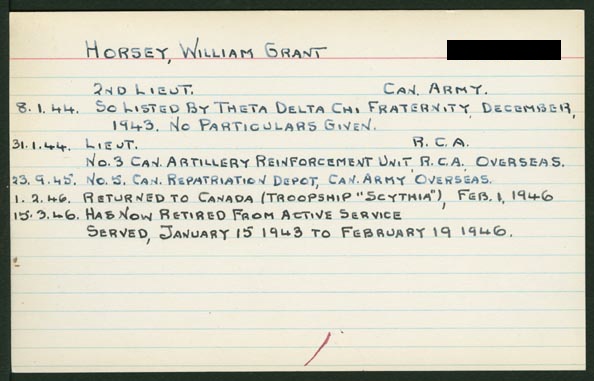 HORSEY, WILLIAM GRANT
2ND LIEUT. CAN. ARMY.
8.1.44. SO LISTED BY THETA DELTA CHI FRATERNITY, DECEMBER,
1943. NO PARTICULARS GIVEN.
31.1.44. LIEUT. R.C.A.
NO.3 CAN. ARTILLERY REINFORCEMENT UNIT, R.C.A. OVERSEAS.
23.9.45. NO.5. CAN. REPATRIATION DEPOT, CAN. ARMY OVERSEAS.
1.2.46. RETURNED TO CANADA (TROOPSHIP "SCYTHIA"), FEB. 1, 1946
15.3.46. HAS NOW RETIRED FROM ACTIVE SERVICE
SERVED, JANUARY 15 1943 TO FEBRUARY 19 1946.